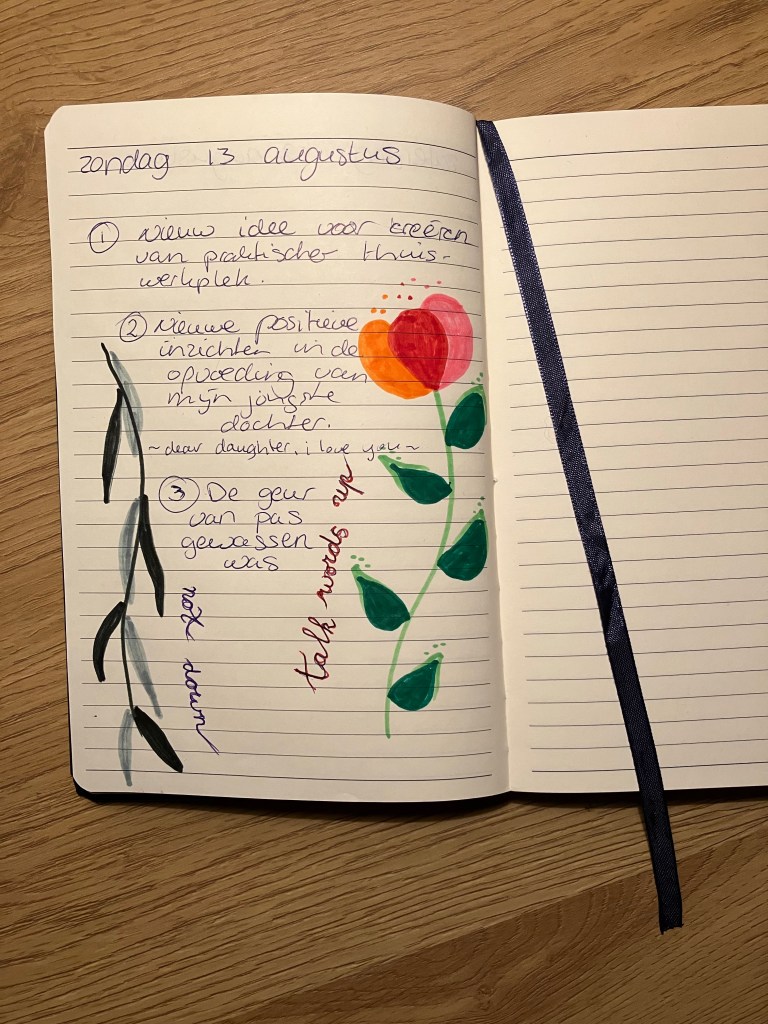 zondag 13 augustus
① Nieuw idee voor creëren
van praktischer thuis-
werkplek.
② Nieuwe positieve
inzichten in de
opvoeding van
mijn jongste
dochter.
~dear daughter, i love you~
③ De geur
van pas
gewassen
was
talk words up
not down